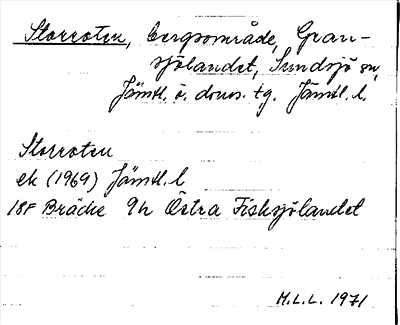 Storroten, bergsområde, Gran-
sjölandet, Sundsjö sn,
Jämtl. ö. doms. tg. Jämtl. l.
Storroten
ek (1969) Jämtl. l
18F Bräcke 9h Östra Fisksjölandet
M.L.L. 1971